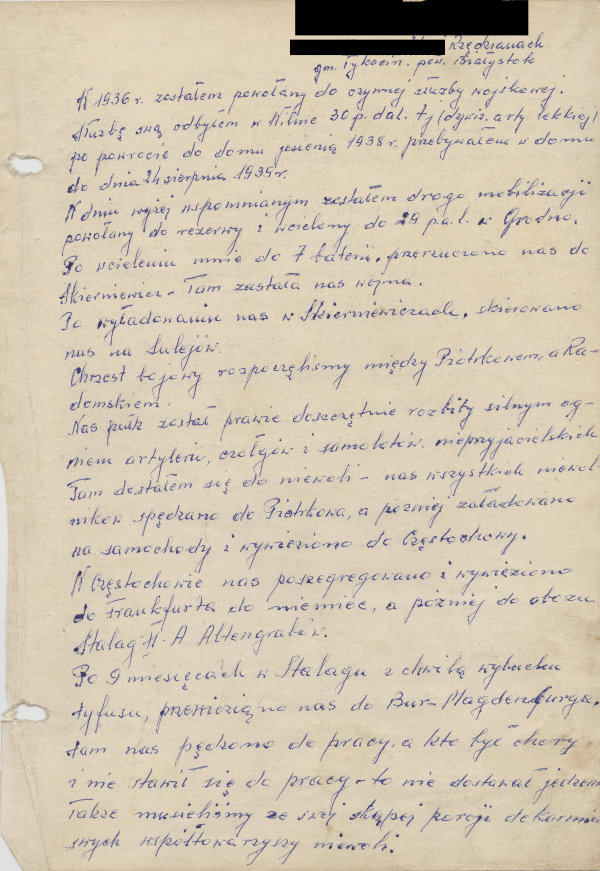 Rzędzianach
gm. Tykocin. pow. Białystok
W 1936 r. zostałem powołany do czynnej służby wojskowej.
Służbę swą odbyłem w Wilnie 30 p. dal. tj (dywiz. arty. lekkiej)
po powrocie do domu jesienią 1938 r. przebywałem w domu
do dnia 24 sierpnia 1939 r.
W dniu wyżej wspomnianym zostałem drogo mobilizacji
powołany do rezerwy i wcielony do 29 p.a.l. w Grodno.
Po wcieleniu mnie do 7 baterii, przerzucono nas do
Skierniewicz - Tam zastała nas wojna.
Po wyładowaniu nas w Skierniewiczach, skierowano
nas na Sulejów.
Chrzest bojowy rozpoczęliśmy między Piotrkowem, a Ra-
domskiem.
Nas pułk został prawie doszczętnie rozbity silnym og-
niem artylerii, czołgów i samolotów, nieprzyjacielskich
Tam dostałem się do niewoli - nas wszystkich niewol-
ników spędzano do Piotrkowa, a później załadowano
na samochody i wywieziono do Częstochowy.
W Częstochowie nas posegregowano i wywieziono
do Frankfurta do niemiec, a później do obozu
Stalag II-A Altengrabów.
Po 9 miesięcach w Stalagu z chwilą wybuchu
tyfusu, przewieziono nas do Bur-Magdenburga.
tam nas pędzono do pracy, a kto był chory
i nie stawił się do pracy - to nie dostawał jedzenia
Także musieliśmy ze swej skąpej porcji dokarmiać
swych współtowarzyszy niewoli.